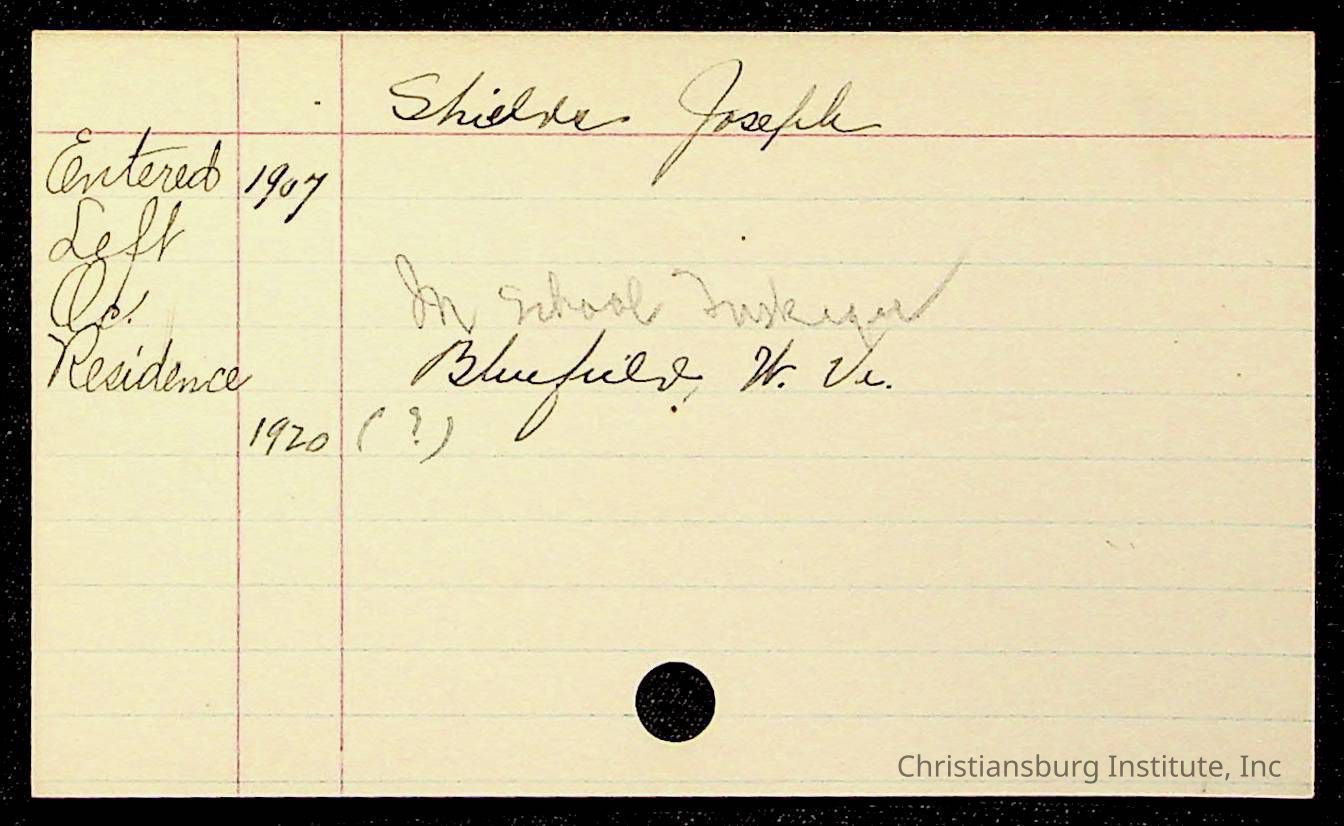 Shields Joseph
Entered 1907
Left
Oc. In School Tuskegee
Residence Bluefield, W. Va.
1920 (?)
Christiansburg Institute, Inc